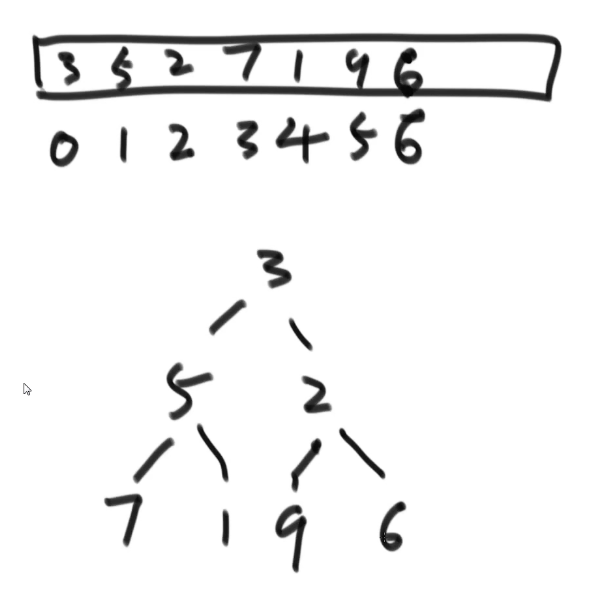 3 5 2 7 1 9 6
0 1 2 3 4 5 6
3
5 2
7 1 9 6